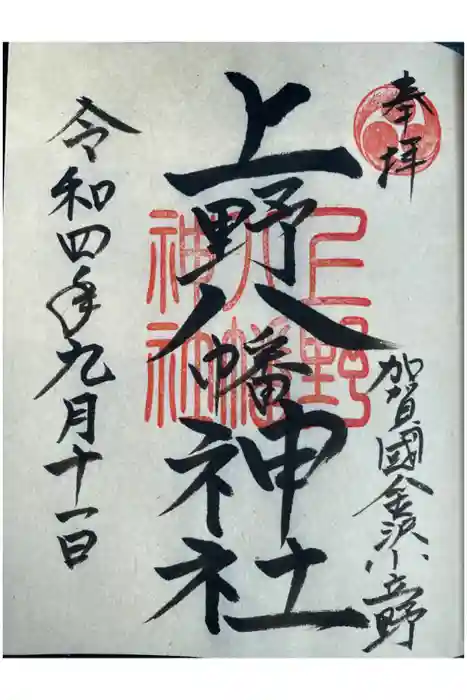 奉拝
加賀國金沢小立野
上野八幡神社
上野
八幡
神社
令和四年九月十一日